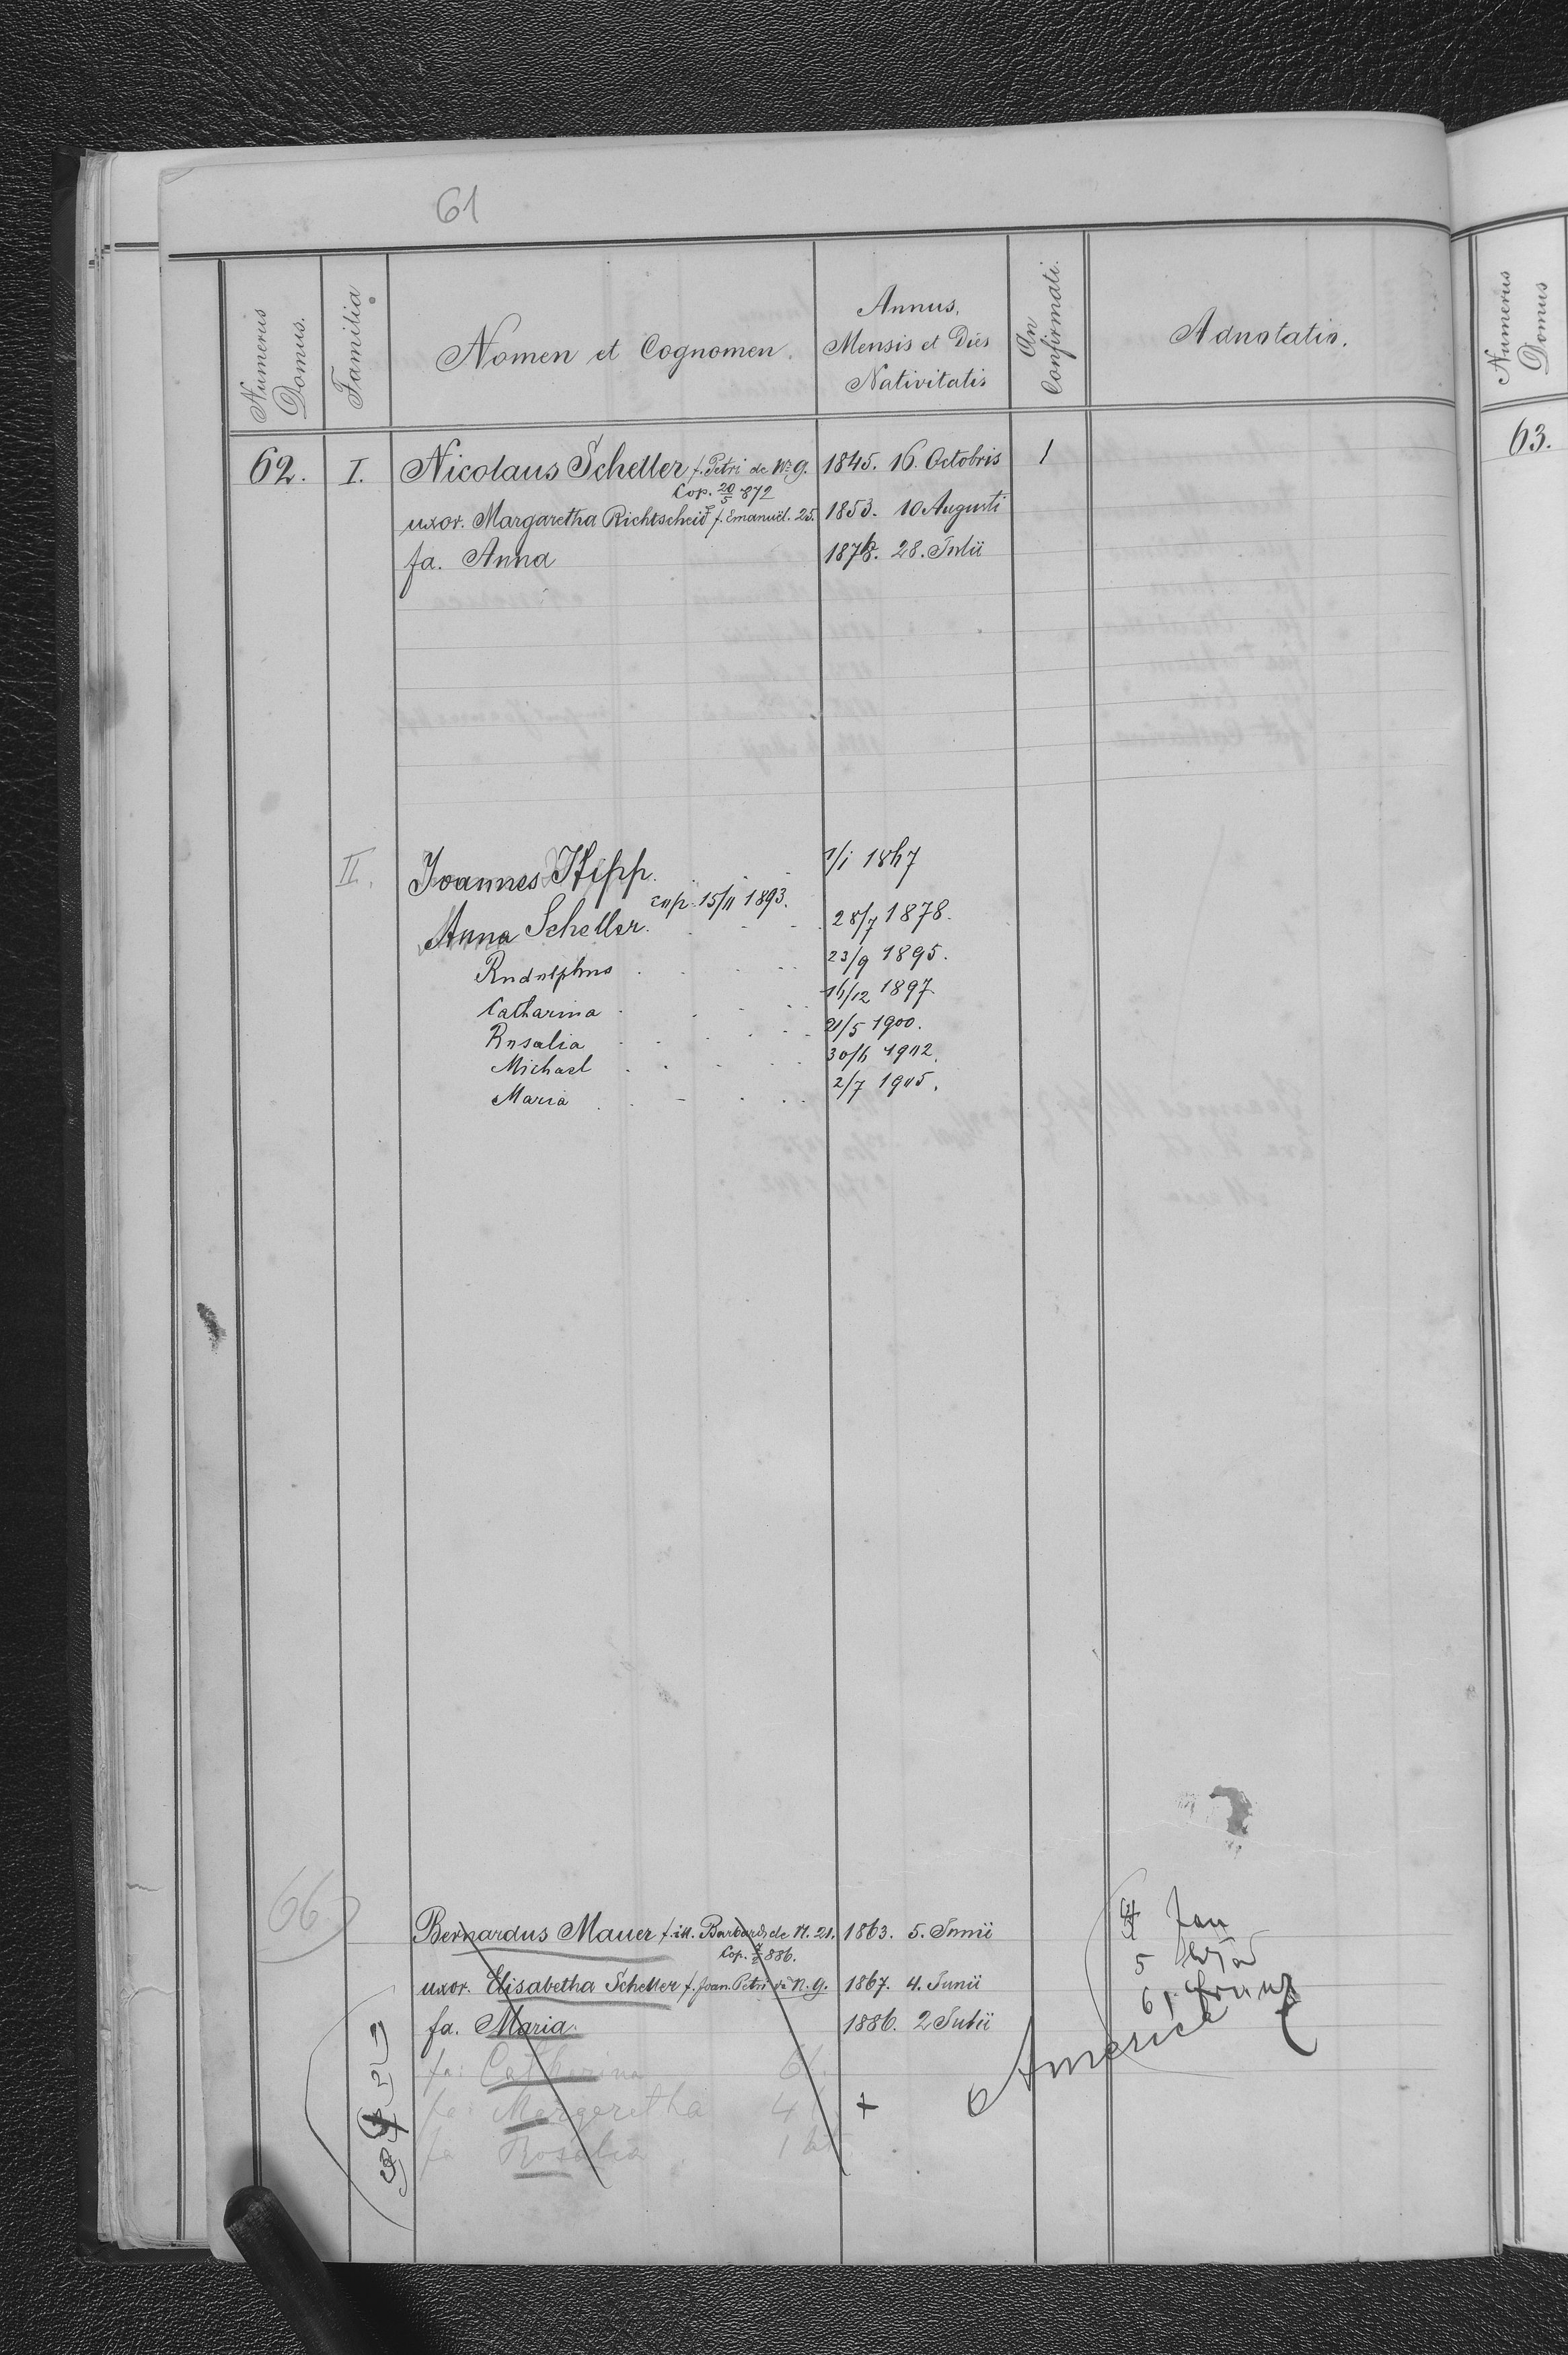 61
Numerus Domus. Familia. Nomen et Cognomen. Annus, Mensis et Dies Nativitatis An Confirmati. Adnotatio. Numerus Domus
62. I. Nicolaus Scheller f. Petri de Nr. 9. 1845. 16. Octobris 1 63.
Cop. 20/5 872
uxor. Margaretha Richtscheid f. Emanuel. 25. 1853. 10 Augusti
fa. Anna 1878. 28. Julii
II. Joannes Hipp. 1/1 1867
cop. 15/11 1893.
Anna Scheller. 28/7 1878.
Rudolphus 23/9 1895.
Catharina 16/12 1897.
Rosalia 21/5 1900.
Michael 30/6 1902.
Maria 2/7 1905.
66
Bernardus Mauer f. ill. Barbara de N. 21. 1863. 5. Junii
Cop. 886.
uxor. Elisabetha Scheller f. Joan. Petri de N. 9. 1867. 4. Junii 5
fa. Maria. 1886. 2 Julii 6
America
fa: Catharina 6
fa: Margaretha 4 +
fa Rosalia 1